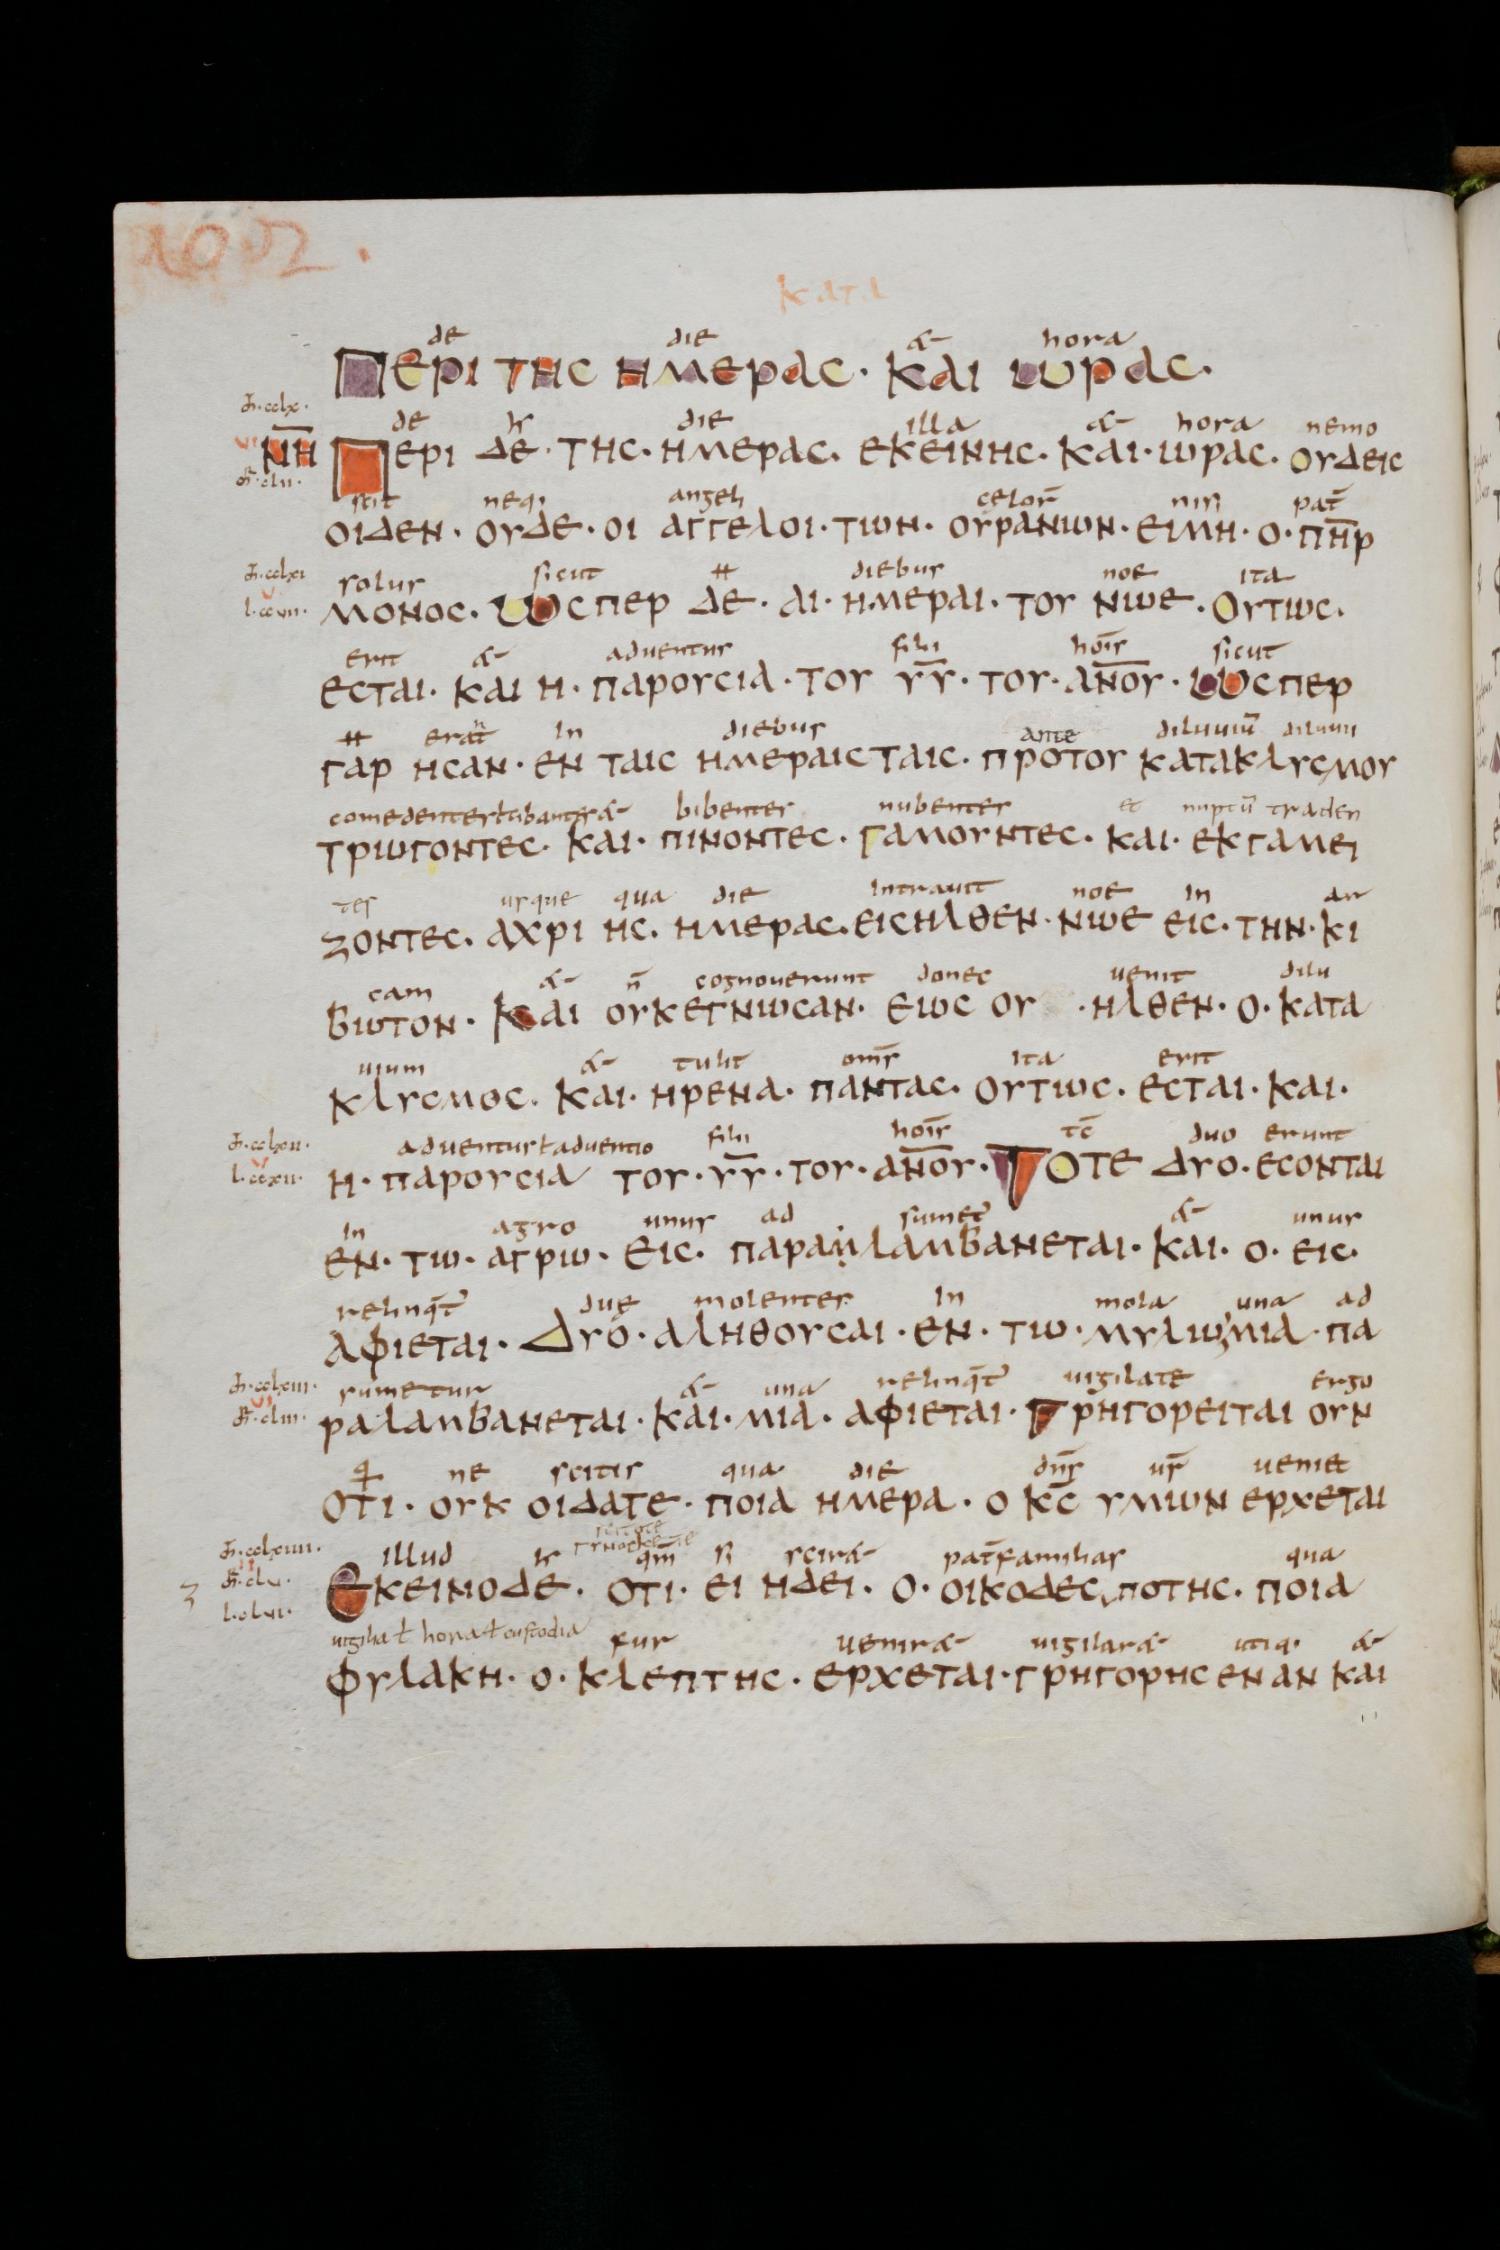 κατα
de die &- hora
Περι της ημερας · και ωρας ·
de die illa &- hora nemo
ΝΗ Περι δε · της · ημερας · εκεινης · και · ωρας · ουδεις
scit angeli celoꝝ nisi pat̄
οιδεν · ουδε · οι αγγελοι · των · ουρανων · ειμη · ο · πη̄ρ
solus sicut diebus noe ita
μονος · Ωσπερ δε · αι · ημεραι · του νωε · Ουτως ·
erit &- adventus filii hoīs sicut
εσται · και η · παρουσια · του υ̅υ̅ · του · αν̅ο̅υ · Ωσπερ
erat in diebus ante diluuiū diluuii
γαρ ησαν · εν ταις ημεραις ταις · προτου κατακλυσμου
bibentes nubentes et nuptū traden
τριωγοντες · και · πινοντες · γαμουντες · και · εκγαμει
tes usque qua die intrauit noe in ar
ζοντες · αχρι ης · ημερας · εισηλθεν · νωε εις · την · κι
cam &- n̄ cognoverunt donec uenit dilu
βωτον · Και ουκεγνωσαν · εως ου · ηλθεν · ο · κατα
uium &- tulit om̄s ita erit
κλυσμος · και · ηρενα · παντας · ουτως · εσται · και ·
adventus ł adventio filii hoīs tc̄ duo erunt
η · παρουσια του · υ̅υ̅ · του · αν̅ο̅υ · Τοτε δυο · εσονται
in agro unus ad sumet̄ &- unus
εν · τω · αγρω · εις · παραμλαμβανεται · και · ο · εις ·
relinq̄t̄ due molentes in mola una ad
αφιεται · Δυο · αληθουσαι · εν · τω · μυλωμια · πα
sumetur &- una relinq̄t̄ uigilate ergo
ραλαμβανεται · και · μια · αφιεται · Γρηγορειται ουν
ne scitis qua die dn̄s ur̄ ueniet
οτι · ουκ οιδατε · ποια ημερα · ο κ̅ς̅ υμιων ερχεται
illud qm̄ scir&- pat̄familias qua
Εκεινοδε · οτι · ει ηδει · ο · οικοδεσποτης · ποια
uigilia ł hora ł custodia fur uenir&- uigilar&- utiq· &-
φυλακη · ο · κλεπτης · ερχεται · γρηγορησεν αν και